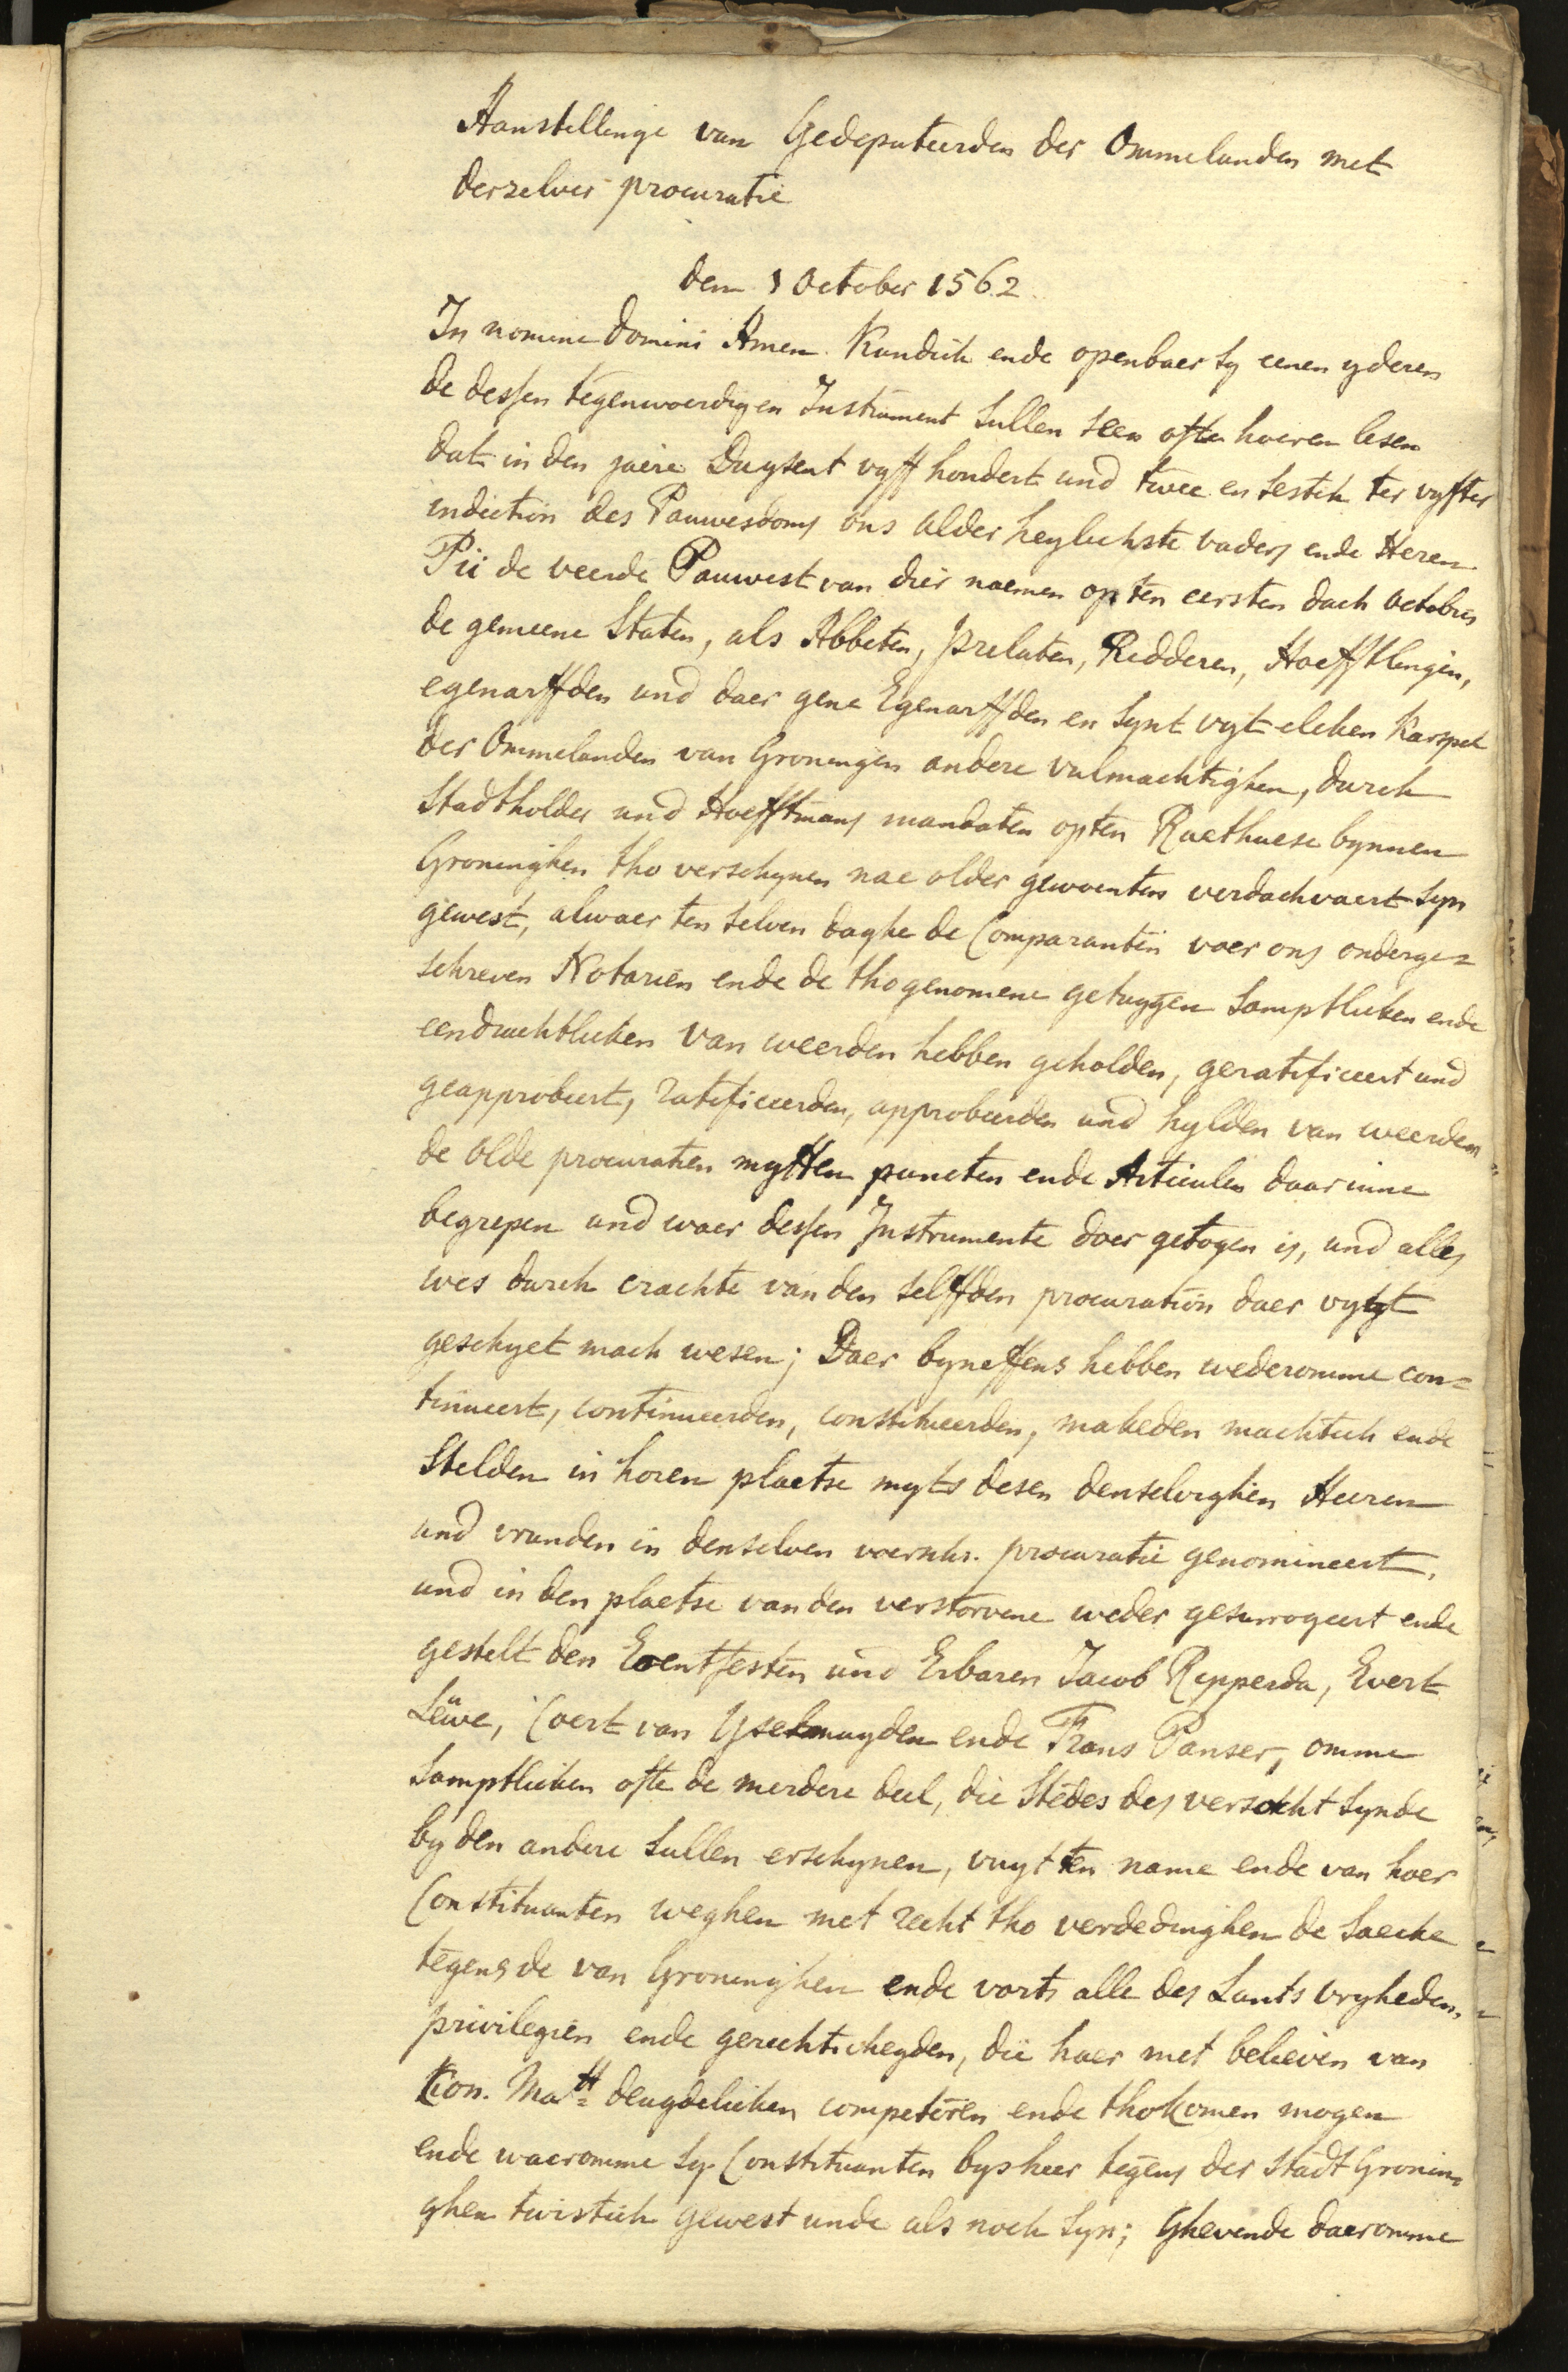 Aanstellinge van Gedeputeerden der Ommelanden met
derzelver procuratie
den 1 October 1562.
In nomine Domini Amen. Kundich ende openbaer sy eenen yderen
de dessen tegenwoerdigen Instrument sullen seen ofte hoeren lesen
dat in den jaere Duysent vyff hondert und twee en sestich ter vyfter
indiction des Pauwesdoms ons alder heylichste vaders ende Heren
Pii de veerde Pauwest van dier naemen op ten eersten dach Octobris
de gemeene Staten, als Abbeten, Prelaten, Redderen, Hoefftlengen,
egenarffden und daer gene Egenarffden en synt vyt elcken Karspel
der Ommelanden van Groningen andere vulmachtighen, durch
Stadtholder und Hoefftmans mandaten opten Raethuese bynnen
Groninghen tho verschynen nae older gewoenten verdachvaert syn
gewest, alwaer ten selven daghe de Comparanten voer ons onderge=
schreven Notarien ende de thogenomene getuygen samptlicken ende
eendrachtlicken van weerden hebben geholden, geratificeert und
geapprobeert, ratificeerden, approbeerden und hylden van weerden
de olde procuratien mytten puncten ende Articulen daarinne
begrepen und waer dessen Instrumente doer getogen is, und alles
wes durch crachte van den selffden procuration daer vytgt
geschyet mach wesen; Daer byneffens hebben wederomme con=
tinueert, continueerden, constitueerden, makeden machtich ende
stelden in horen plaetse myts desen denselvighen Heeren
und vrunden in denselven voerschr. procuratie genomineert,
und in den plaetse van den verstorvene weder gesurrogeert ende
gestelt den Erentfesten und Erbaren Jacob Ripperda, Evert
Lëuwe, Coert van Yselmuyden ende Frans Panser, omme
samptlicken ofte de merdere deel, die stedes des versocht synde
by den andere sullen erschynen, vuyt ten name ende van hoer
Constituanten weghen met recht tho verdedinghen de saecke
tegens de van Groninghen ende vorts alle des Lants vryheden,
privilegien ende gerechticheyden, die haer met believen van
Kon. Matt= deugdelicken competeren ende thokomen mogen
ende waeromme sy Constituanten bysheer tegens der Stadt Gronin=
ghen twistich gewest unde als noch syn; Ghevende daeromme